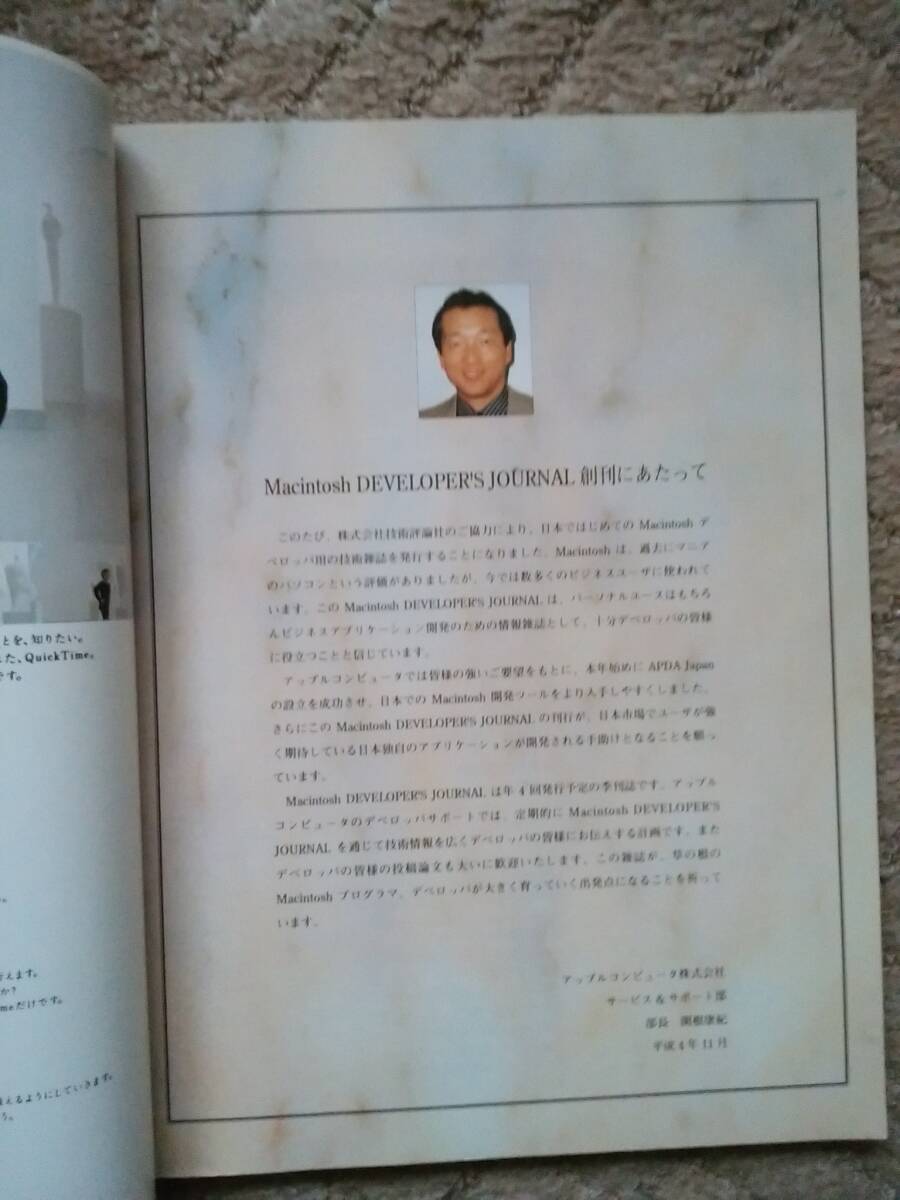 とを、知りたい。
た、QuickTime。
です。
。
行えます。
か?
meだけです。
使えるようにしていきます。
う。
Macintosh DEVELOPER'S JOURNAL 創刊にあたって
このたび、株式会社技術評論社のご協力により、日本ではじめての Macintosh デ
ベロッパ用の技術雑誌を発行することになりました。Macintosh は、過去にマニア
のパソコンという評価がありましたが、今では数多くのビジネスユーザに使われて
います。この Macintosh DEVELOPER'S JOURNAL は、パーソナルユースはもちろ
んビジネスアプリケーション開発のための情報雑誌として、十分デベロッパの皆様
に役立つことと信じています。
アップルコンピュータでは皆様の強いご要望をもとに、本年始めに APDA Japan
の設立を成功させ、日本での Macintosh 開発ツールをより入手しやすくしました。
さらにこの Macintosh DEVELOPER'S JOURNAL の刊行が、日本市場でユーザが強
く期待している日本独自のアプリケーションが開発される手助けとなることを願っ
ています。
Macintosh DEVELOPER'S JOURNAL は年 4 回発行予定の季刊誌です。アップル
コンピュータのデベロッパサポートでは、定期的に Macintosh DEVELOPER'S
JOURNAL を通じて技術情報を広くデベロッパの皆様にお伝えする計画です。また
デベロッパの皆様の投稿論文も大いに歓迎いたします。この雑誌が、草の根の
Macintosh プログラマ、デベロッパが大きく育っていく出発点になることを祈って
います。
アップルコンピュータ株式会社
サービス&サポート部
部長 関根康紀
平成 4 年 11 月